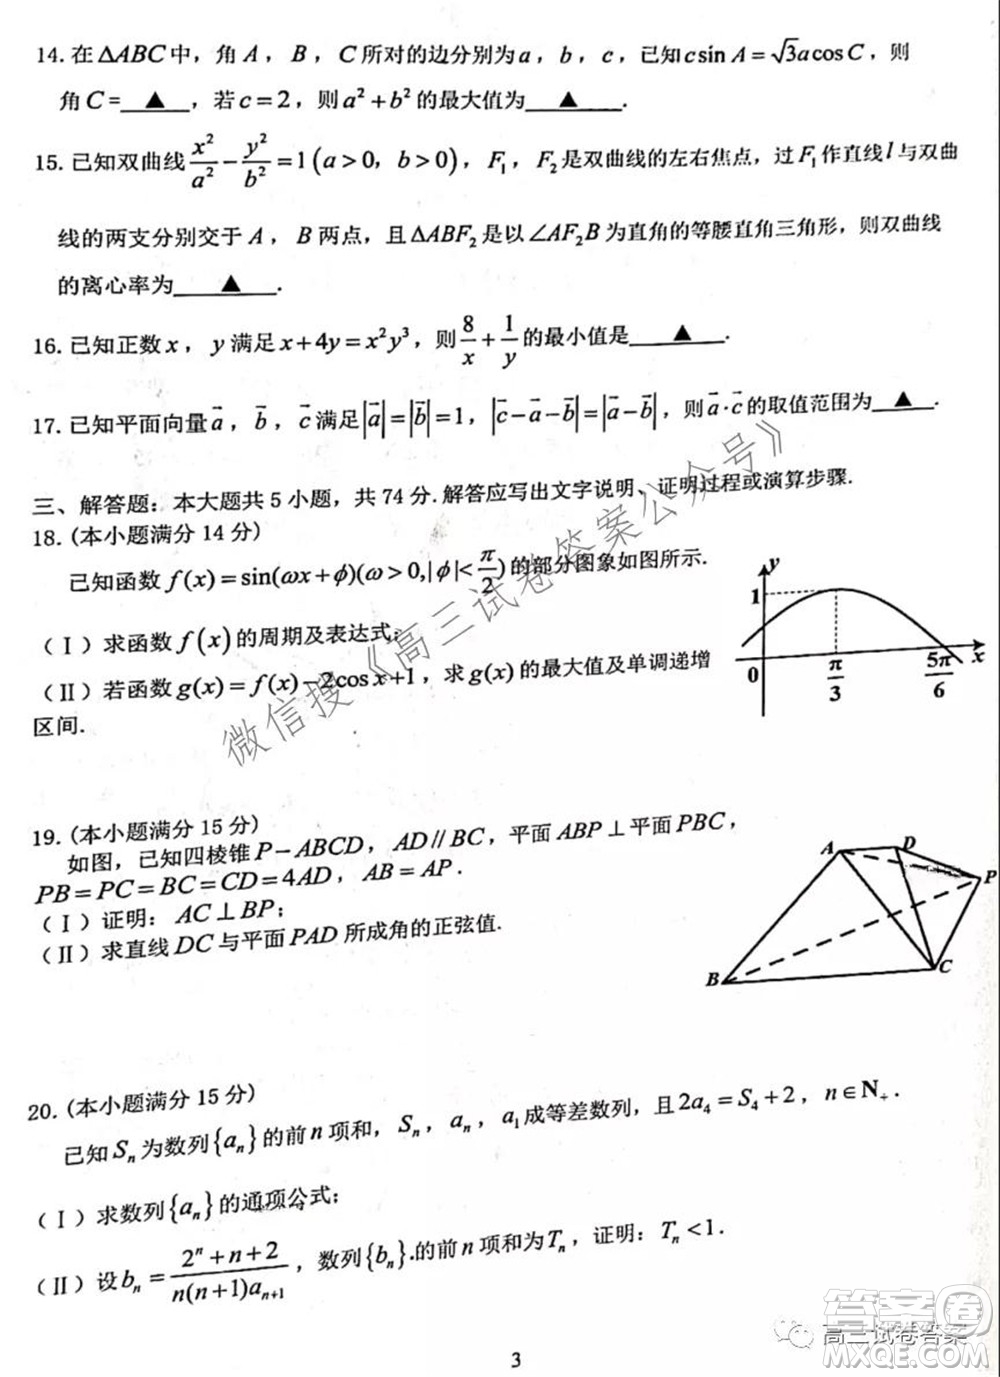 14.在△ABC中，角A，B，C所对的边分别为a，b，c，已知c sin A=√3a cos C，则
角C=▲，若c=2，则a²+b²的最大值为▲.
15.已知双曲线x²/a²−y²/b²=1(a>0，b>0)，F₁，F₂是双曲线的左右焦点，过F₁作直线l与双曲
线的两支分别交于A，B两点，且△ABF₂是以∠AF₂B为直角的等腰直角三角形，则双曲线
的离心率为▲.
16.已知正数x，y满足x+4y=x²y³，则8/x+1/y的最小值是▲.
17.已知平面向量a⃗，b⃗，c⃗满足|a⃗|=|b⃗|=1，|c⃗−a⃗−b⃗|=|a⃗−b⃗|，则a⃗·c⃗的取值范围为▲.
三、解答题：本大题共5小题，共74分.解答应写出文字说明、证明过程或演算步骤.
18.(本小题满分14分)
已知函数f(x)=sin(ωx+ϕ)(ω>0,|ϕ|<π/2)的部分图象如图所示.
（Ⅰ）求函数f(x)的周期及表达式；
（Ⅱ）若函数g(x)=f(x)−2cos x+1，求g(x)的最大值及单调递增
区间.
y
1
0
π/3
5π/6
x
19.(本小题满分15分)
如图，已知四棱锥P−ABCD，AD∥BC，平面ABP⊥平面PBC，
PB=PC=BC=CD=4AD，AB=AP.
（Ⅰ）证明：AC⊥BP；
（Ⅱ）求直线DC与平面PAD所成角的正弦值.
A
D
P
B
C
20.(本小题满分15分)
已知Sₙ为数列{aₙ}的前n项和，Sₙ，aₙ，a₁成等差数列，且2a₄=S₄+2，n∈N₊.
（Ⅰ）求数列{aₙ}的通项公式；
（Ⅱ）设bₙ=(2ⁿ+n+2)/(n(n+1)aₙ₊₁)，数列{bₙ}.的前n项和为Tₙ，证明：Tₙ<1.
3
微信搜《高三试卷答案公众号》
高三试卷答案
答案圈
MXQE.COM